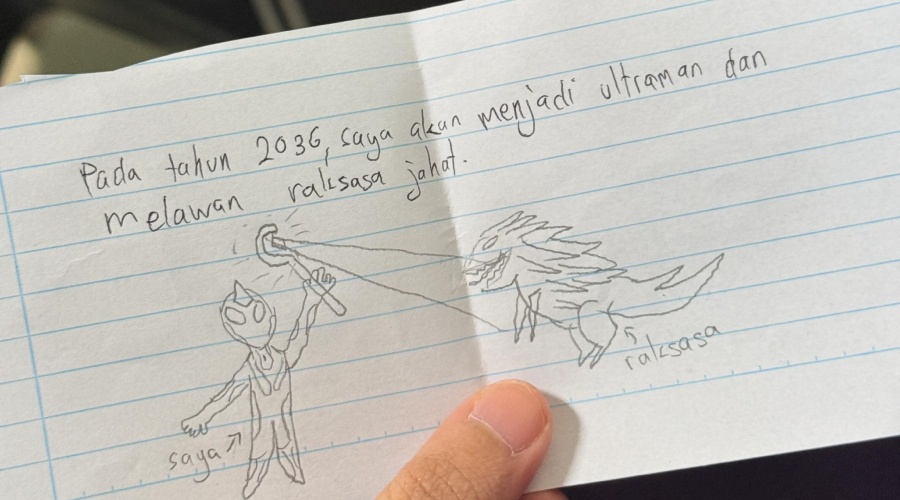 Pada tahun 2036, saya akan menjadi ultraman dan
melawan raksasa jahat.
saya
raksasa